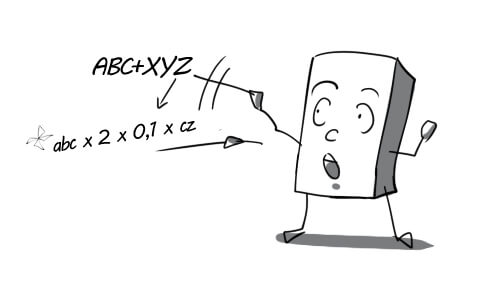 ABC+XYZ
abc x 2 x 0,1 x cz